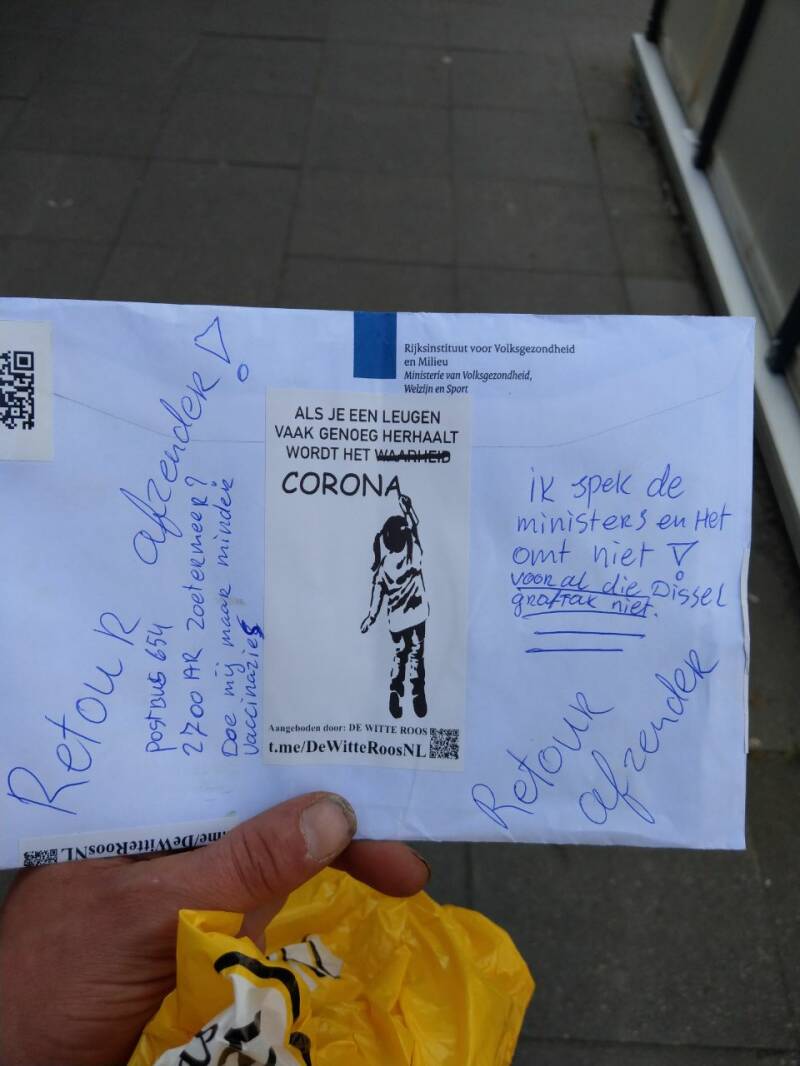 Rijksinstituut voor Volksgezondheid
en Milieu
Ministerie van Volksgezondheid,
Welzijn en Sport
Retour afzender!
postbus 654
2700 AR Zoetermeer?
Doe mij maar minder
vaccinaties
ALS JE EEN LEUGEN
VAAK GENOEG HERHAALT
WORDT HET WAARHEID
CORONA
Aangeboden door: DE WITTE ROOS
t.me/DeWitteRoosNL
ik spek de
ministers en Het
omt niet!
voor al die Dissel
graftak niet.
Retour
afzender
.me/DeWitteRoosNL